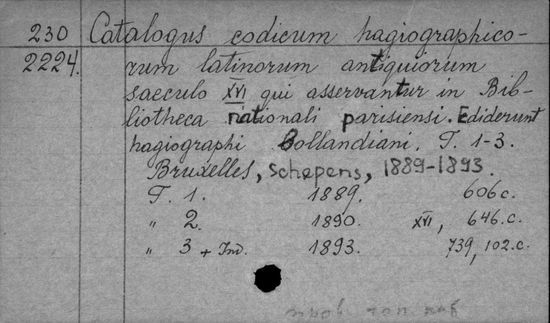 230 Catalogus codicum hagiographico-
2224. rum latinorum antiquiorum
saeculo XVI qui asservantur in Bib-
liotheca nationali parisiensi. Ediderunt
hagiographi Bollandiani. T. 1-3.
Bruxelles, Schepens, 1889-1893.
T. 1. 1889. 606 c.
" 2. 1890. XVI, 646. c.
" 3 + Ind. 1893. 739, 102. c.